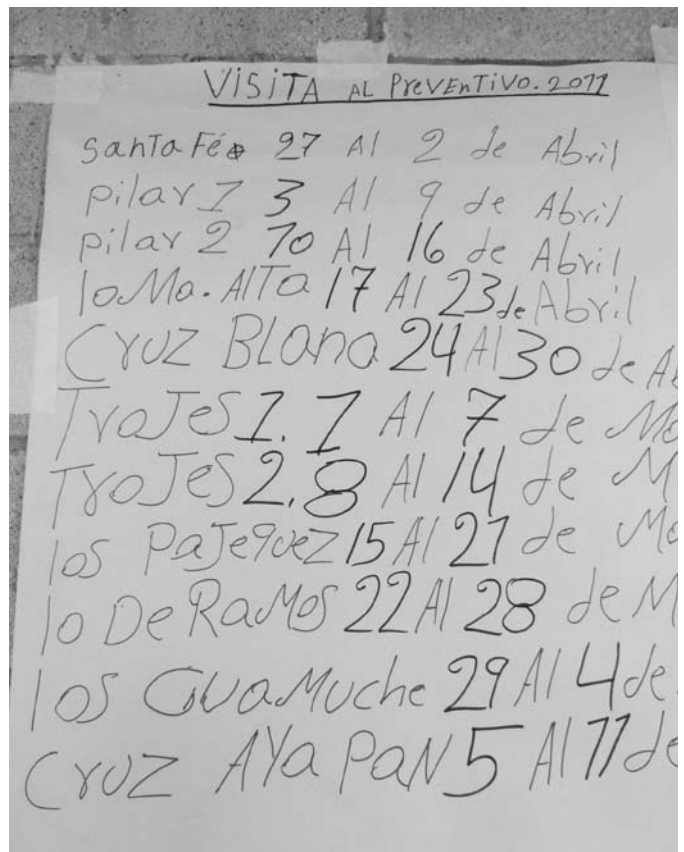 VISITA AL PREVENTIVO. 2011
Santa Fé 27 Al 2 de Abril
pilar 1 3 Al 9 de Abril
pilar 2 10 Al 16 de Abril
loMa. AlTa 17 Al 23 de Abril
Cruz Blana 24 Al 30 de Ab
TroJeS 1. 1 Al 7 de Ma
TroJeS 2. 8 Al 14 de M
los PaJequez 15 Al 21 de Ma
lo De RaMos 22 Al 28 de M
los GuaMuche 29 Al 4 de
Cruz AYa PaN 5 Al 11 de